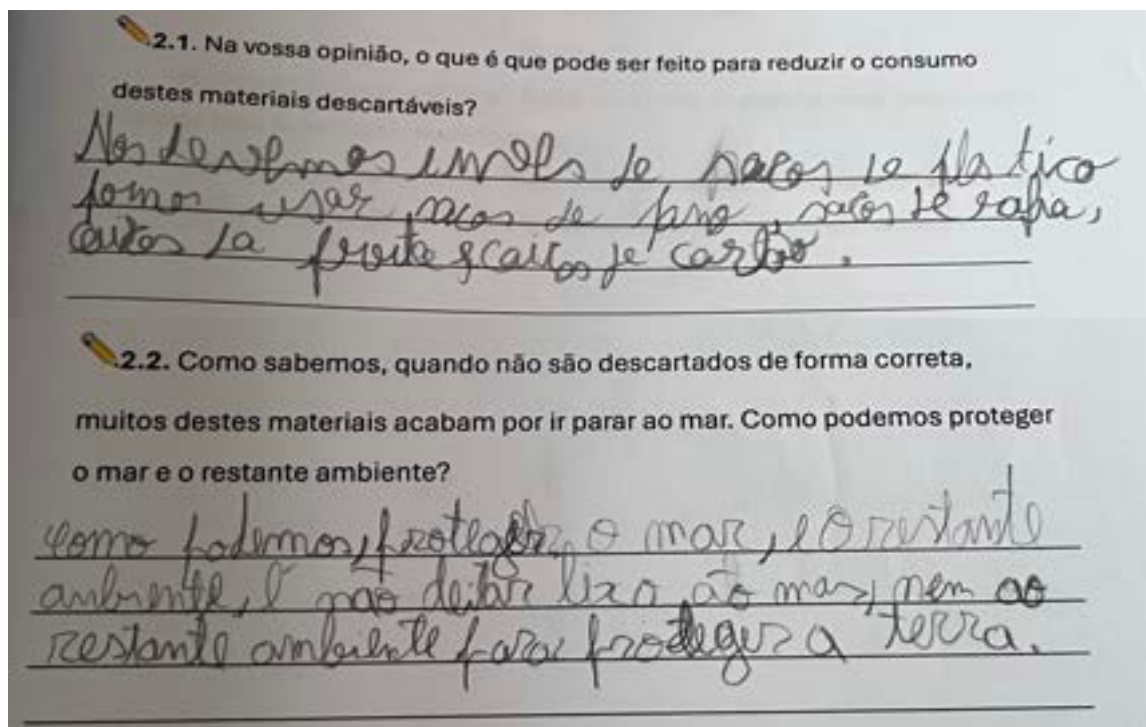 2.1. Na vossa opinião, o que é que pode ser feito para reduzir o consumo
destes materiais descartáveis?
Nos devemos de sacos de plastico
usar sacos de pano, sacos de rafia,
caixas da fruita e caixas de cartão.
2.2. Como sabemos, quando não são descartados de forma correta,
muitos destes materiais acabam por ir parar ao mar. Como podemos proteger
o mar e o restante ambiente?
como podemos, proteger o mar, e o restante
ambiente, é não deitar lixo ao mar, nem ao
restante ambiente para proteger a terra.